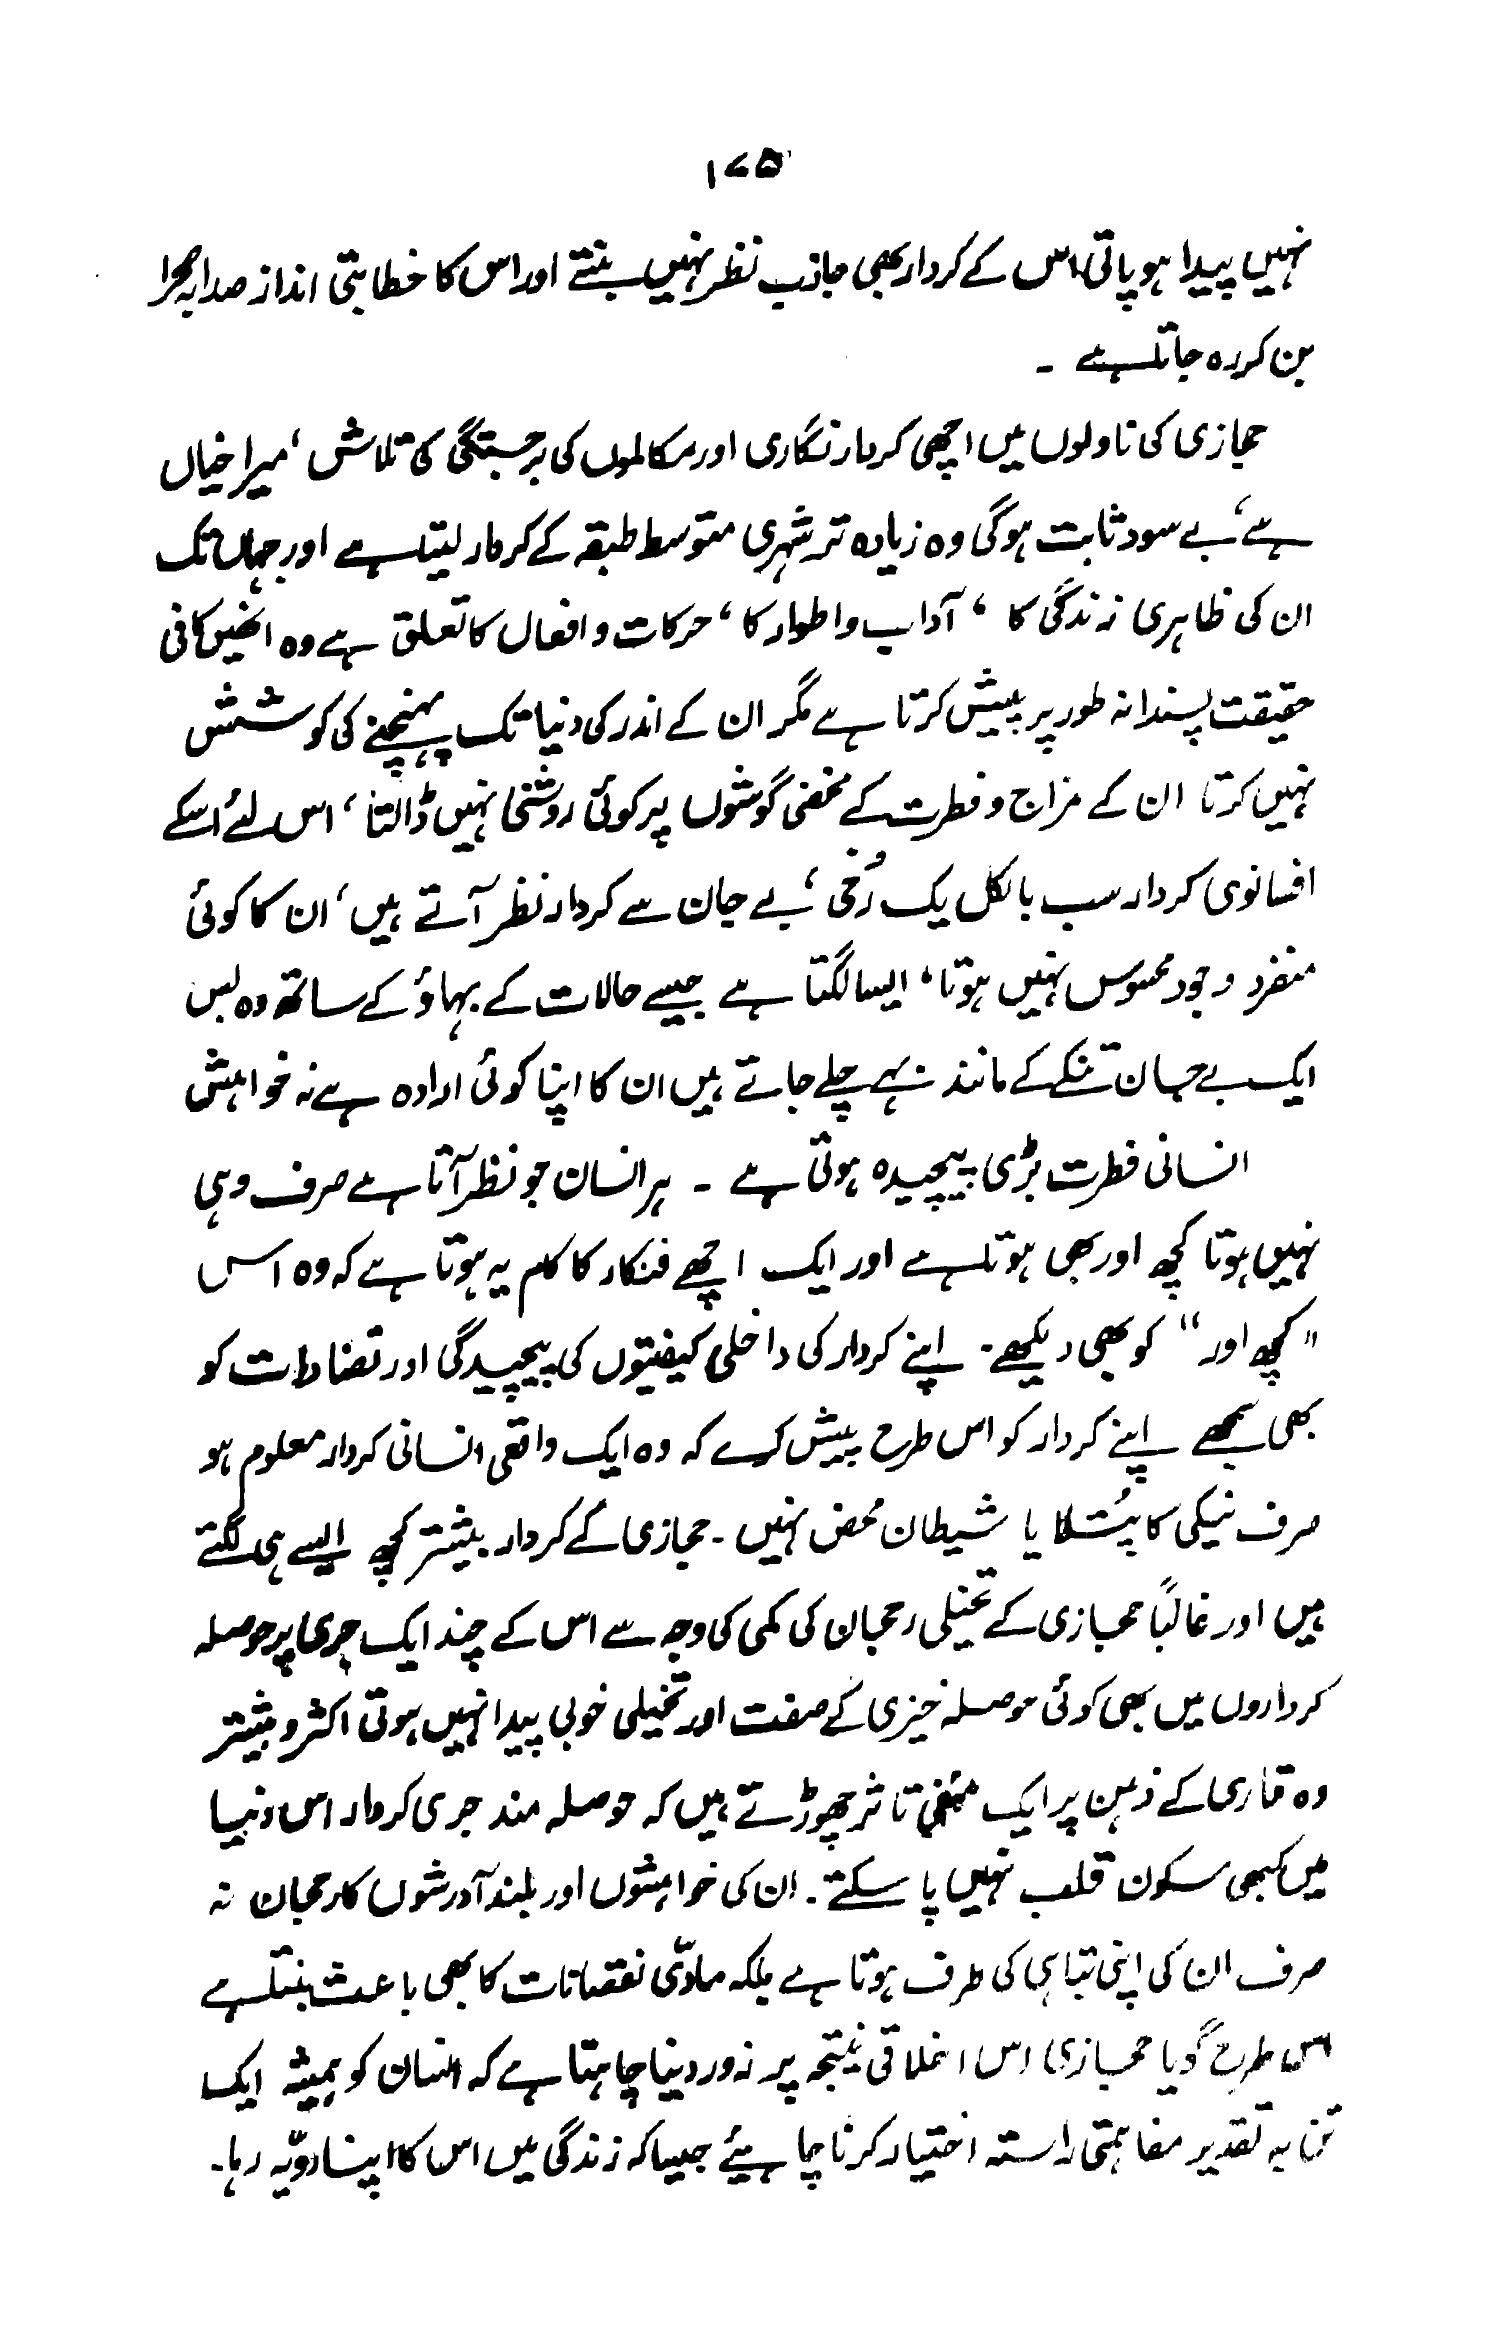 ۱۷۵
نہیں پیدا ہو پاتی، اس کے کردار بھی جاذب نظر نہیں بنتے اور اس کا خطابتی انداز صدا بہ صحرا
بن کر رہ جاتا ہے ۔
حجازی کی ناولوں میں اچھی کردار نگاری اور مکالموں کی برجستگی کی تلاش ، میرا خیال
ہے، بے سود ثابت ہوگی وہ زیادہ تر شہری متوسط طبقہ کے کردار لیتا ہے اور جہاں تک
ان کی ظاہری زندگی کا ، آداب و اطوار کا ، حرکات و افعال کا تعلق ہے وہ انھیں کافی
حقیقت پسندانہ طور پر پیش کرتا ہے مگر ان کے اندر کی دنیا تک پہنچنے کی کوشش
نہیں کرتا ان کے مزاج و فطرت کے مخفی گوشوں پر کوئی روشنی نہیں ڈالتا ، اس لئے اسکے
افسانوی کردار سب بالکل یک رُخی ، بے جان سے کردار نظر آتے ہیں ، ان کا کوئی
منفرد وجود محسوس نہیں ہوتا ، ایسا لگتا ہے جیسے حالات کے بہاؤ کے ساتھ وہ بس
ایک بے جان تنکے کے مانند بہے چلے جاتے ہیں ان کا اپنا کوئی ارادہ ہے نہ خواہش
انسانی فطرت بڑی پیچیدہ ہوتی ہے ۔ ہر انسان جو نظر آتا ہے صرف وہی
نہیں ہوتا کچھ اور بھی ہوتا ہے اور ایک اچھے فنکار کا کام یہ ہوتا ہے کہ وہ اس
"کچھ اور" کو بھی دیکھے ۔ اپنے کردار کی داخلی کیفیتوں کی پیچیدگی اور تضادات کو
بھی سمجھے اپنے کردار کو اس طرح پیش کرے کہ وہ ایک واقعی انسانی کردار معلوم ہو
صرف نیکی کا پُتلا یا شیطان محض نہیں ۔ حجازی کے کردار بیشتر کچھ ایسے ہی لگتے
ہیں اور غالباً حجازی کے تخیلی رحجان کی کمی کی وجہ سے اس کے چند ایک جری پرحوصلہ
کرداروں میں بھی کوئی حوصلہ خیزی کے صفت اور تخیلی خوبی پیدا نہیں ہوتی اکثر و بیشتر
وہ قاری کے ذہن پر ایک منفی تاثر چھوڑتے ہیں کہ حوصلہ مند جری کردار اس دنیا
میں کبھی سکون قلب نہیں پا سکتے ۔ ان کی خواہشوں اور بلند آدرشوں کا رحجان نہ
صرف ان کی اپنی تباہی کی طرف ہوتا ہے بلکہ مادّی نقصانات کا بھی باعث بنتا ہے
اس طرح گویا حجازی اس اخلاقی نتیجہ پر زور دینا چاہتا ہے کہ انسان کو ہمیشہ ایک
تن بہ تقدیر مفاہمتی راستہ اختیار کرنا چاہیئے جیسا کہ زندگی میں اس کا اپنا رویّہ رہا ۔